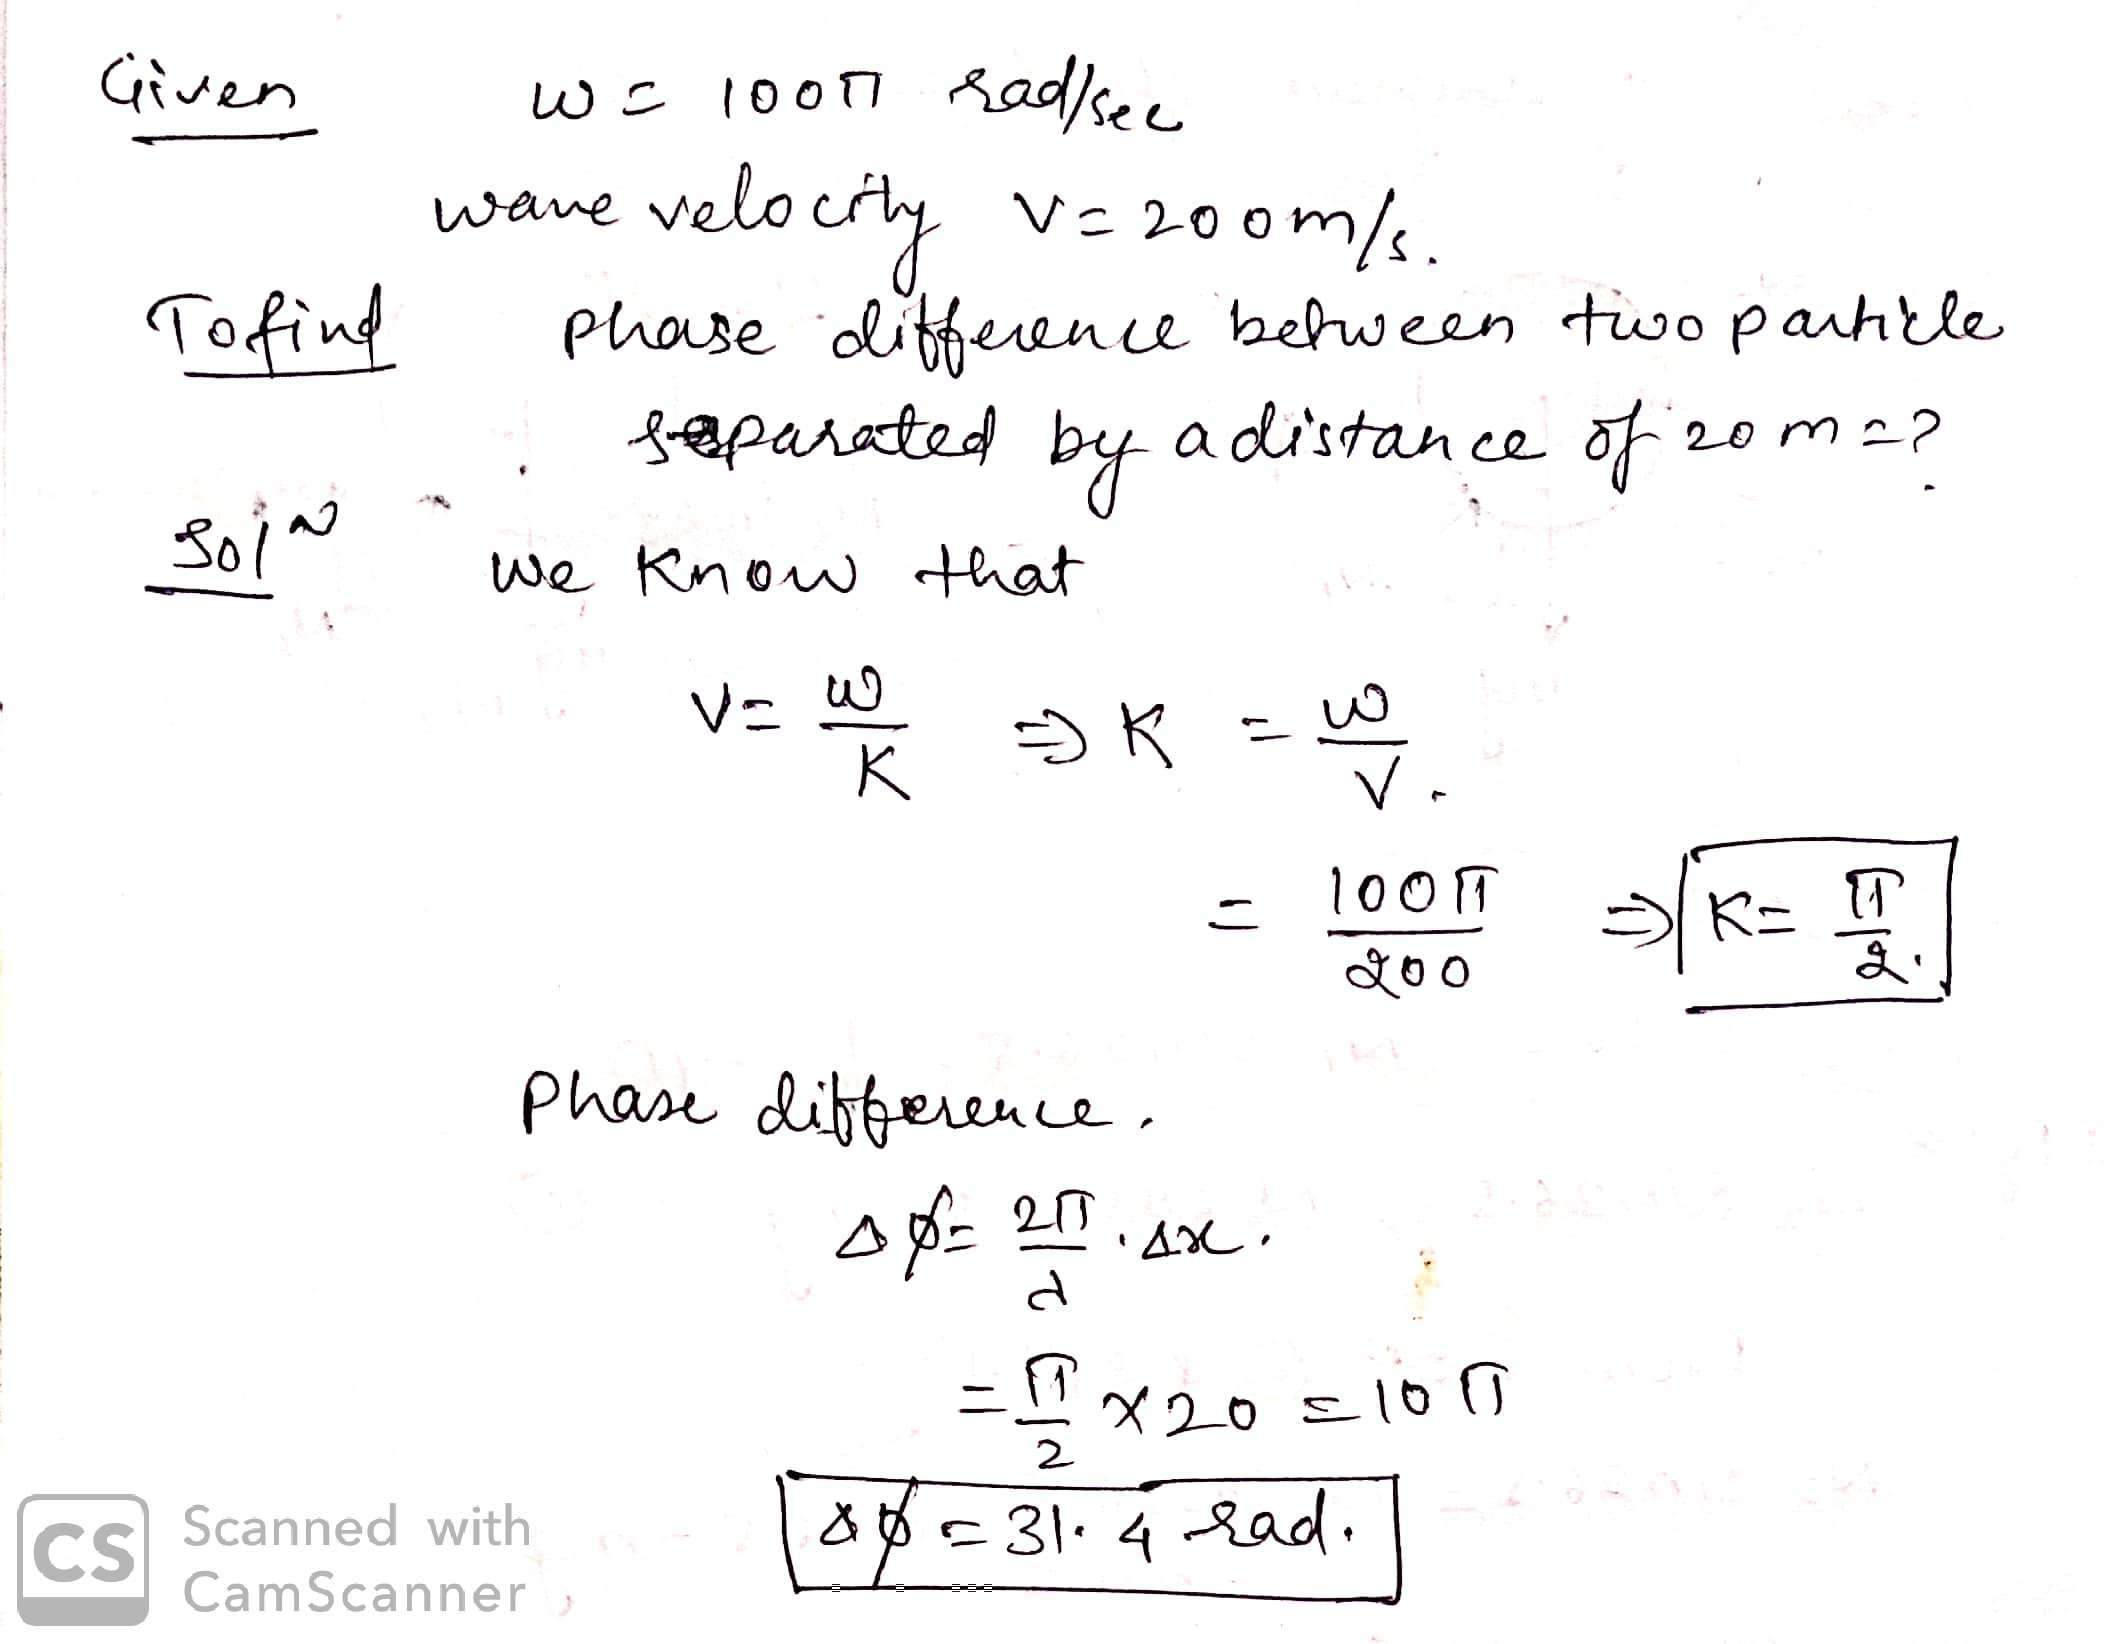 Given w = 100π rad/sec
wave velocity v = 200m/s.
To find phase difference between two particle
separated by a distance of 20 m = ?
Solⁿ we know that
v = w/K ⇒ K = w/v.
= 100π/200 ⇒ K = π/2.
Phase difference.
Δφ = 2π/λ . Δx.
= π/2 × 20 = 10π
Δφ = 31.4 rad.
CS Scanned with
CamScanner